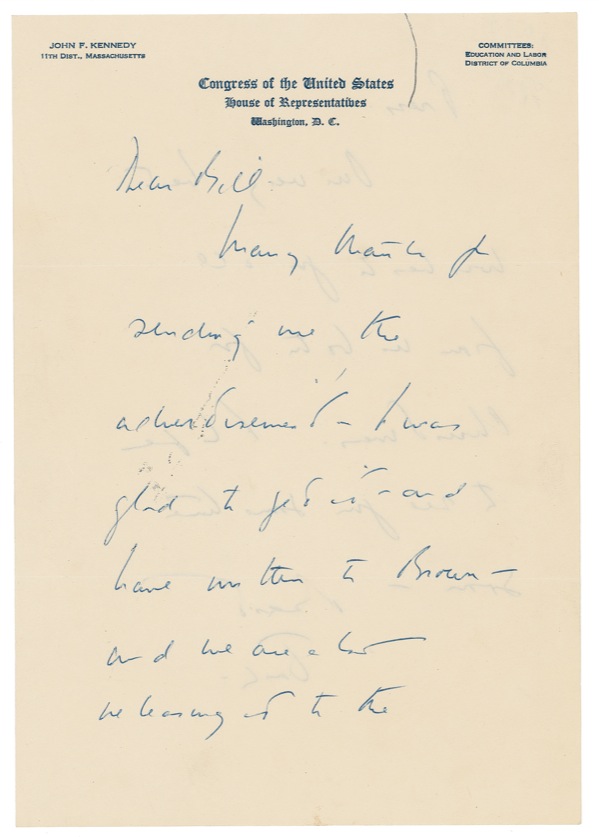 JOHN F. KENNEDY
11TH DIST., MASSACHUSETTS
COMMITTEES:
EDUCATION AND LABOR
DISTRICT OF COLUMBIA
Congress of the United States
House of Representatives
Washington, D. C.
Dear Bill
Many thanks for
sending me the
advertisement - I was
glad to get it - and
have written to Brown -
and we are
releasing it to the